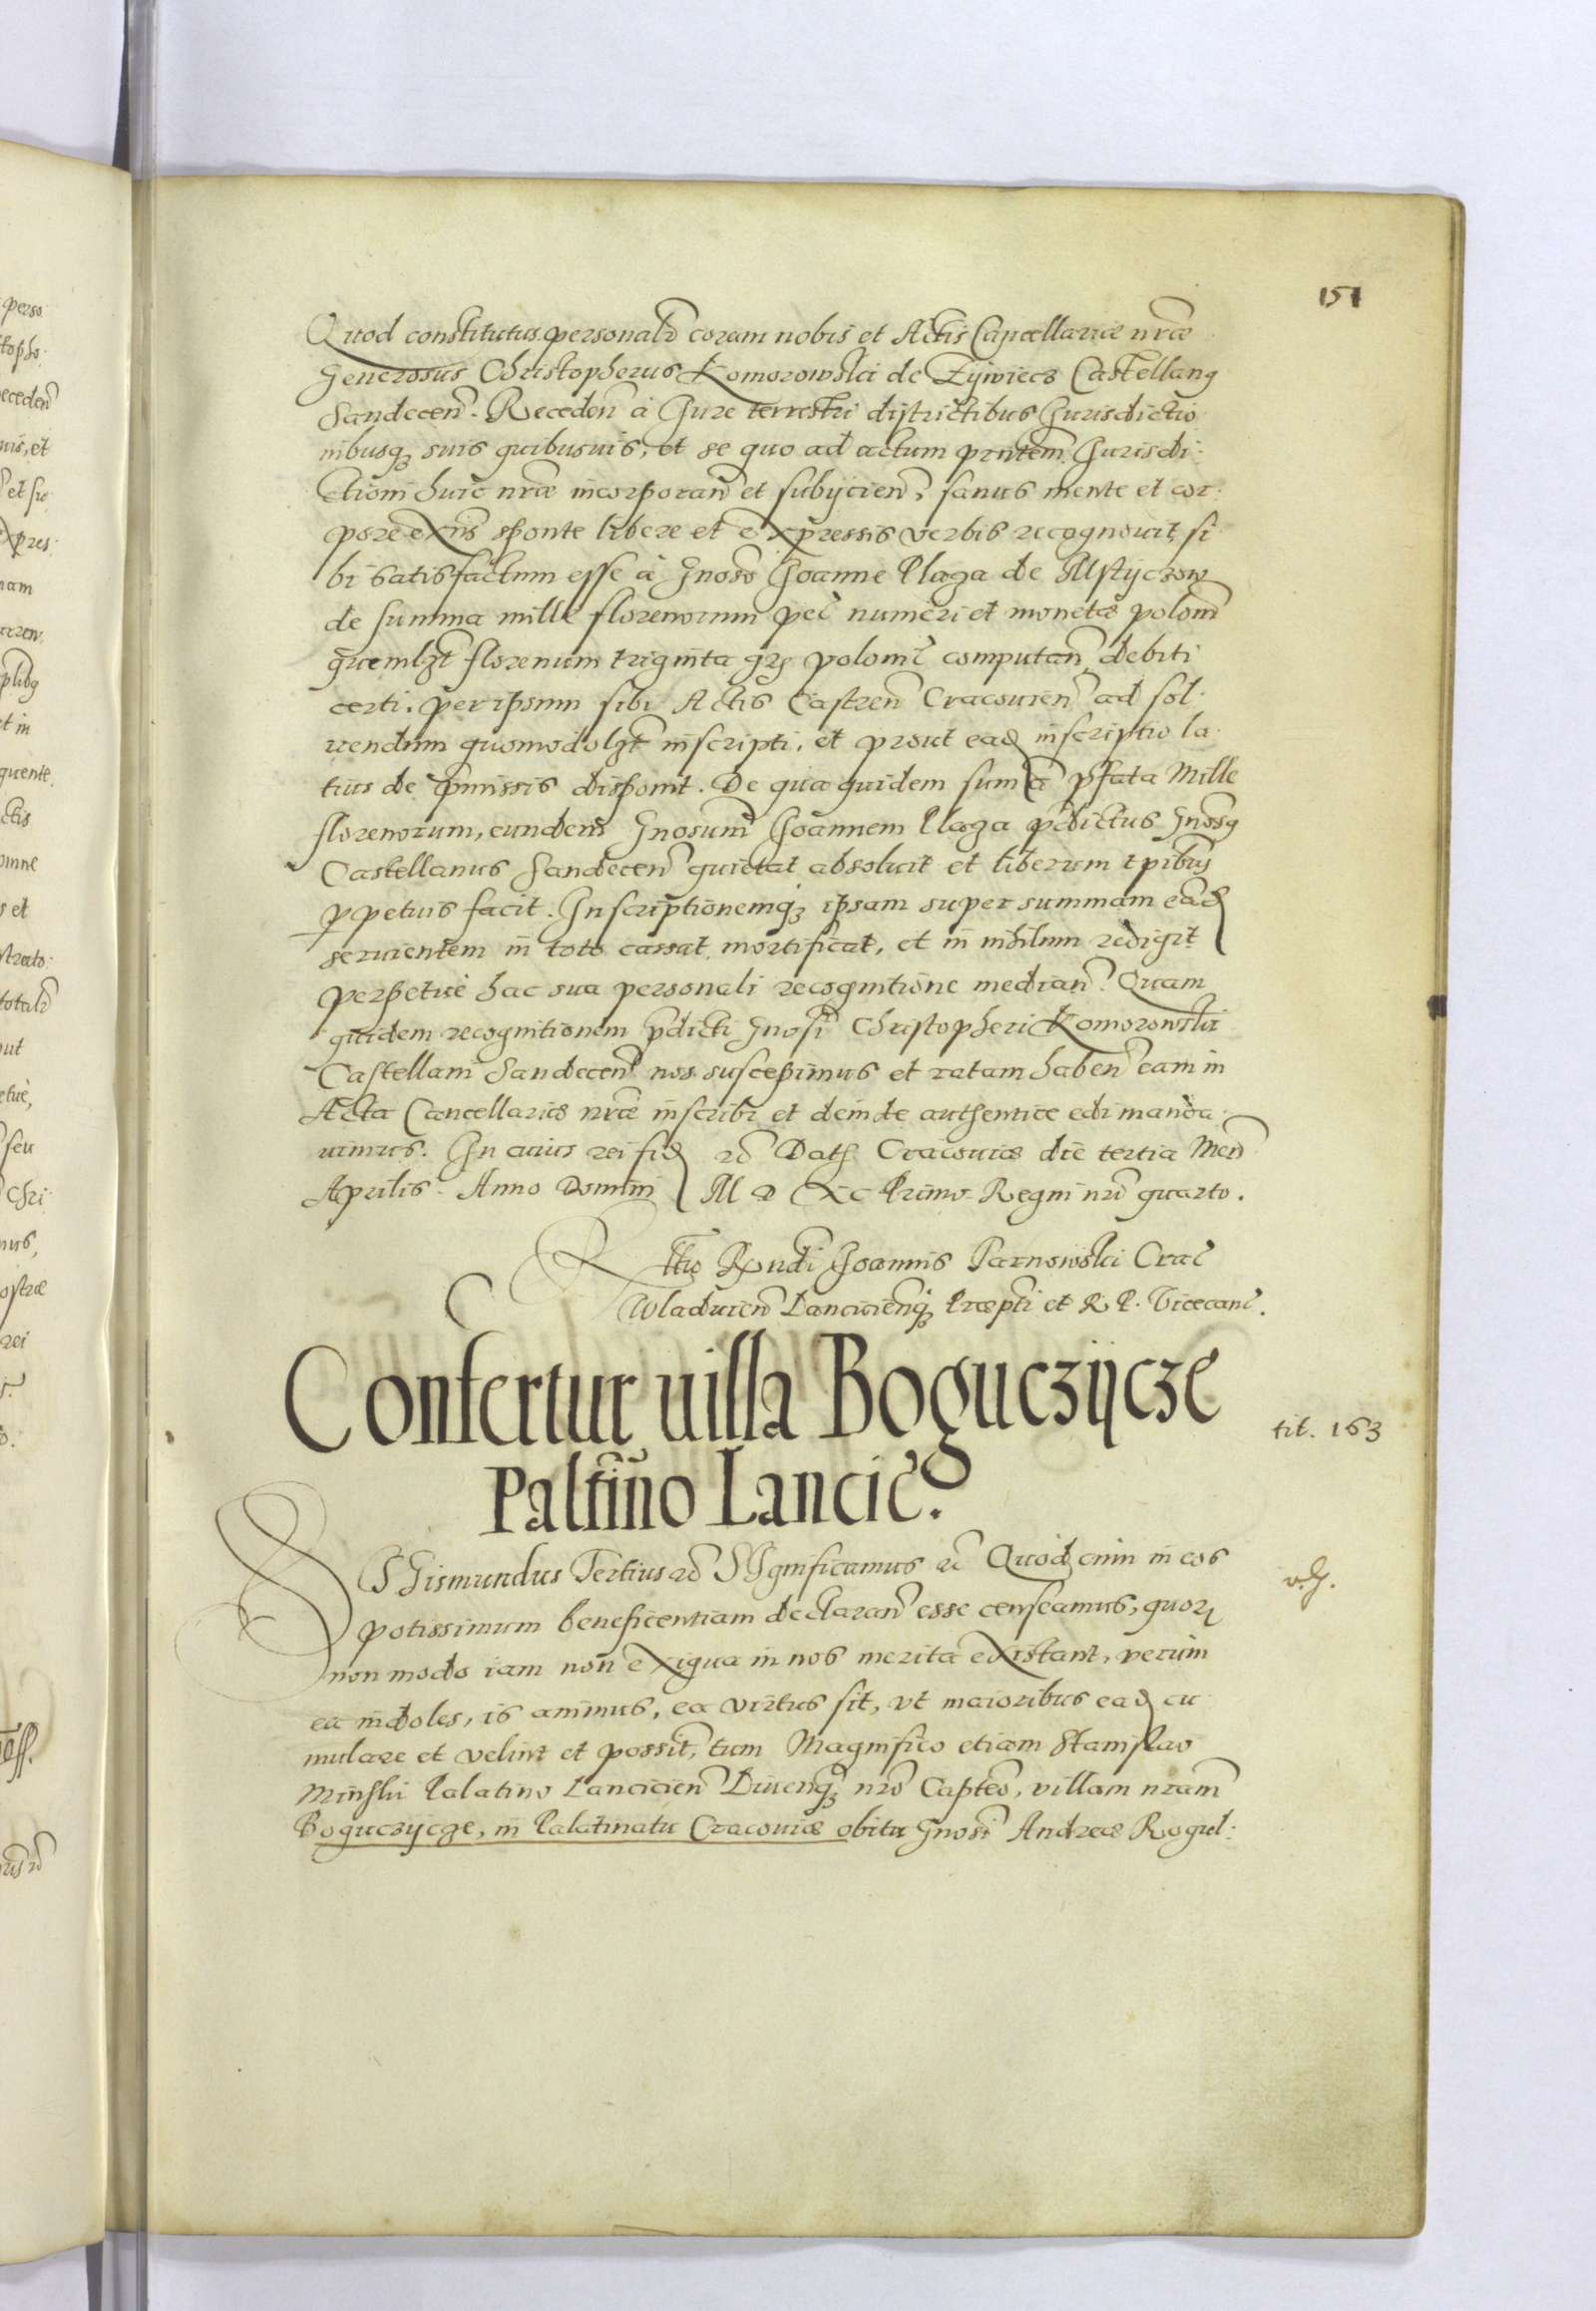 151
Quod constitutus personalr coram nobis et Actis Cancellariæ nræ
Generosus Christopherus Komorowski de Zÿwiecz Castellang
Sandecen. Receden à Jure terrestri districtibus Jurisdictio
nibusq suis quibusuis, et se quo ad actum prntem Jurisdi
ctioni huic nræ incorporan et subijcien, sanus mente et cor
pore exns sponte libere et expressis verbis recognouit, si
bi satisfactum esse à Gnoso Joanne Plaza de Mstÿczow
de summa mille florenorum pec numeri et monetæ polonl
quemlzt florenum triginta grs polonl computan, debiti
certi. per ipsum sibi Actis Castren Cracouien ad sol
uendum quomodolzt inscripti, et prout ead inscriptio la
tius de pmissis disponit. De qua quidem summa pfata Mille
florenorum, eundem Gnosum Joannem Plaza pdictus Gnosg
Castellanus Sandecen quietat absoluit et liberum tpibus
ppetuis facit. Inscriptionemq ipsam super summam eand
seruientem in toto cassat, mortificat, et in nihilum redigit
perpetue hac sua personali recognitione median. Quam
quidem recognitionem pdicti Gnosi Christopheri Komorowski
Castellani Sandecen nos suscepimus et ratam haben eam in
Acta Cancellariæ nræ inscribi et deinde authentice edi manda
uimus. In cuius rei fid rc Dat Cracouiæ die tertia Men
Aprilis. Anno Domini M D XC Primo Regni nri quarto.
Rttio Rxndi Joannis Tarnowski Crac
Wladuien Lancicienq Præpti et R P. Vicecanc.
Confertur uilla Boguczÿcze
Paltino Lancic.
SIgismundus Tertius rc SIgnificamus rc Quod cum in eos
potissimum beneficentiam declaran esse censeamus, quor
non modo iam non exigua in nos merita existant, verum
ea indoles, is animus, ea virtus sit, vt maioribus ead cu
mulare et velint et possit, tum Magnifico etiam Stanislao
Minski Palatino Lancicien Liuenq nro Capteo, villam nram
Boguczycze, in Palatinatu Cracouiæ obitu Gnosi Andreæ Rogul:
tit. 163